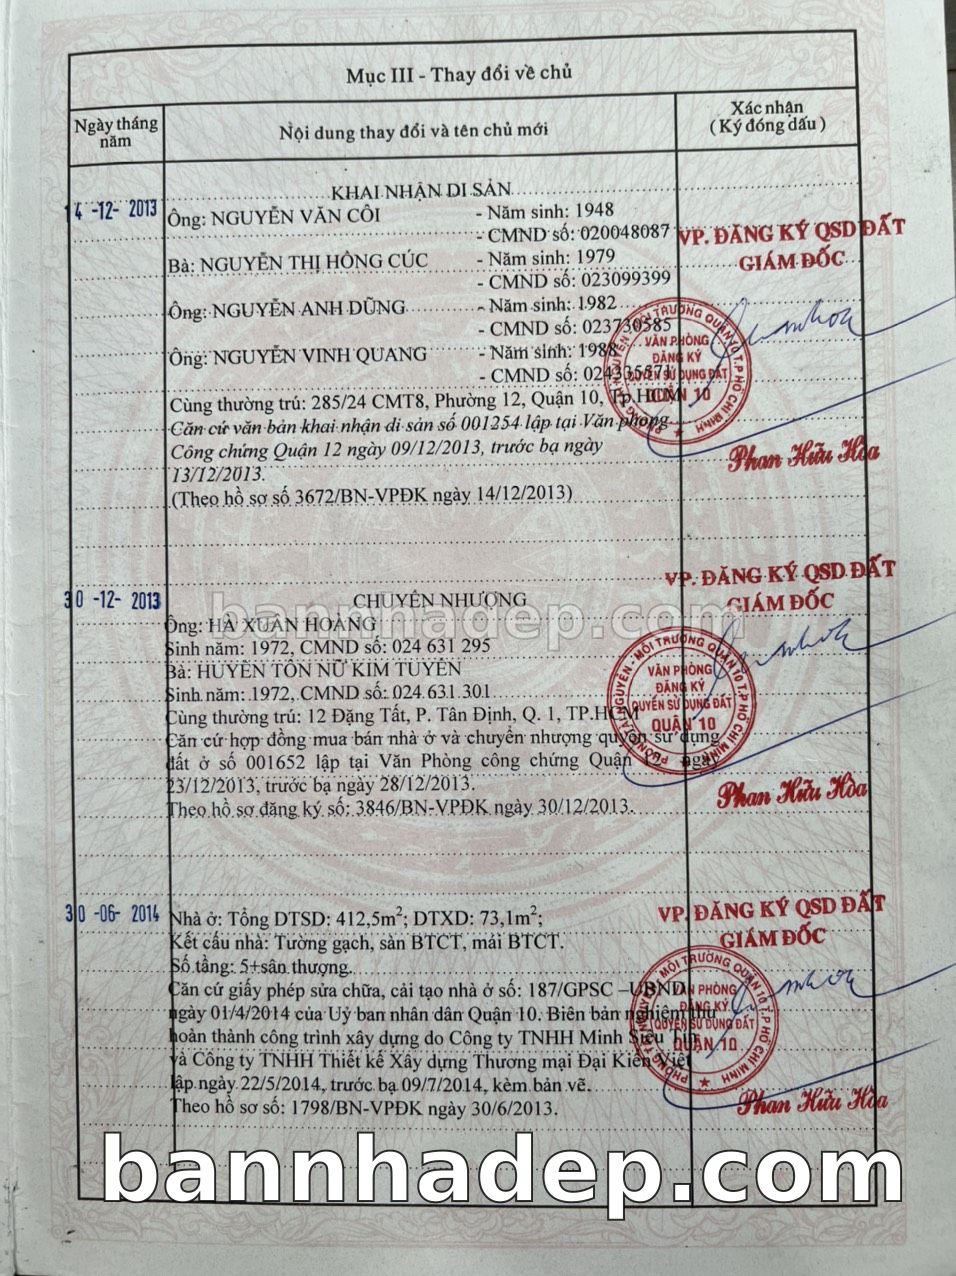 Mục III - Thay đổi về chủ
Ngày tháng năm
Nội dung thay đổi và tên chủ mới
Xác nhận
( Ký đóng dấu )
KHAI NHẬN DI SẢN
14 -12- 2013
Ông: NGUYỄN VĂN CÔI - Năm sinh: 1948
- CMND số: 020048087
VP. ĐĂNG KÝ QSD ĐẤT
GIÁM ĐỐC
Bà: NGUYỄN THỊ HỒNG CÚC - Năm sinh: 1979
- CMND số: 023099399
Ông: NGUYỄN ANH DŨNG - Năm sinh: 1982
- CMND số: 023730585
Ông: NGUYỄN VINH QUANG - Năm sinh: 1988
- CMND số: 024335571
VĂN PHÒNG
ĐĂNG KÝ
QUYỀN SỬ DỤNG ĐẤT
QUẬN 10
Cùng thường trú: 285/24 CMT8, Phường 12, Quận 10, Tp.HCM
Căn cứ văn bản khai nhận di sản số 001254 lập tại Văn phòng
Công chứng Quận 12 ngày 09/12/2013, trước bạ ngày
13/12/2013.
(Theo hồ sơ số 3672/BN-VPĐK ngày 14/12/2013)
Phan Hữu Hòa
30 -12- 2013
CHUYỂN NHƯỢNG
bannhadep.com
VP. ĐĂNG KÝ QSD ĐẤT
GIÁM ĐỐC
Ông: HÀ XUÂN HOÀNG
Sinh năm: 1972, CMND số: 024 631 295
Bà: HUYỀN TÔN NỮ KIM TUYẾN
Sinh năm: 1972, CMND số: 024 631 301
Cùng thường trú: 12 Đặng Tất, P. Tân Định, Q. 1, TP.HCM
Căn cứ hợp đồng mua bán nhà ở và chuyển nhượng quyền sử dụng
đất ở số 001652 lập tại Văn Phòng công chứng Quận 12 ngày
23/12/2013, trước bạ ngày 28/12/2013.
Theo hồ sơ đăng ký số: 3846/BN-VPĐK ngày 30/12/2013.
VĂN PHÒNG
ĐĂNG KÝ
QUYỀN SỬ DỤNG ĐẤT
QUẬN 10
Phan Hữu Hòa
30 -06- 2014
Nhà ở: Tổng DTSD: 412,5m2; DTXD: 73,1m2;
Kết cấu nhà: Tường gạch, sàn BTCT, mái BTCT.
Số tầng: 5+sân thượng.
Căn cứ giấy phép sửa chữa, cải tạo nhà ở số: 187/GPSC –UBND
ngày 01/4/2014 của Uỷ ban nhân dân Quận 10. Biên bản nghiệm thu
hoàn thành công trình xây dựng do Công ty TNHH Minh Siêu Tín
và Công ty TNHH Thiết kế Xây dựng Thương mại Đại Kiến Việt
lập ngày 22/5/2014, trước bạ 09/7/2014, kèm bản vẽ.
Theo hồ sơ số: 1798/BN-VPĐK ngày 30/6/2013.
VP. ĐĂNG KÝ QSD ĐẤT
GIÁM ĐỐC
VĂN PHÒNG
ĐĂNG KÝ
QUYỀN SỬ DỤNG ĐẤT
QUẬN 10
Phan Hữu Hòa
bannhadep.com